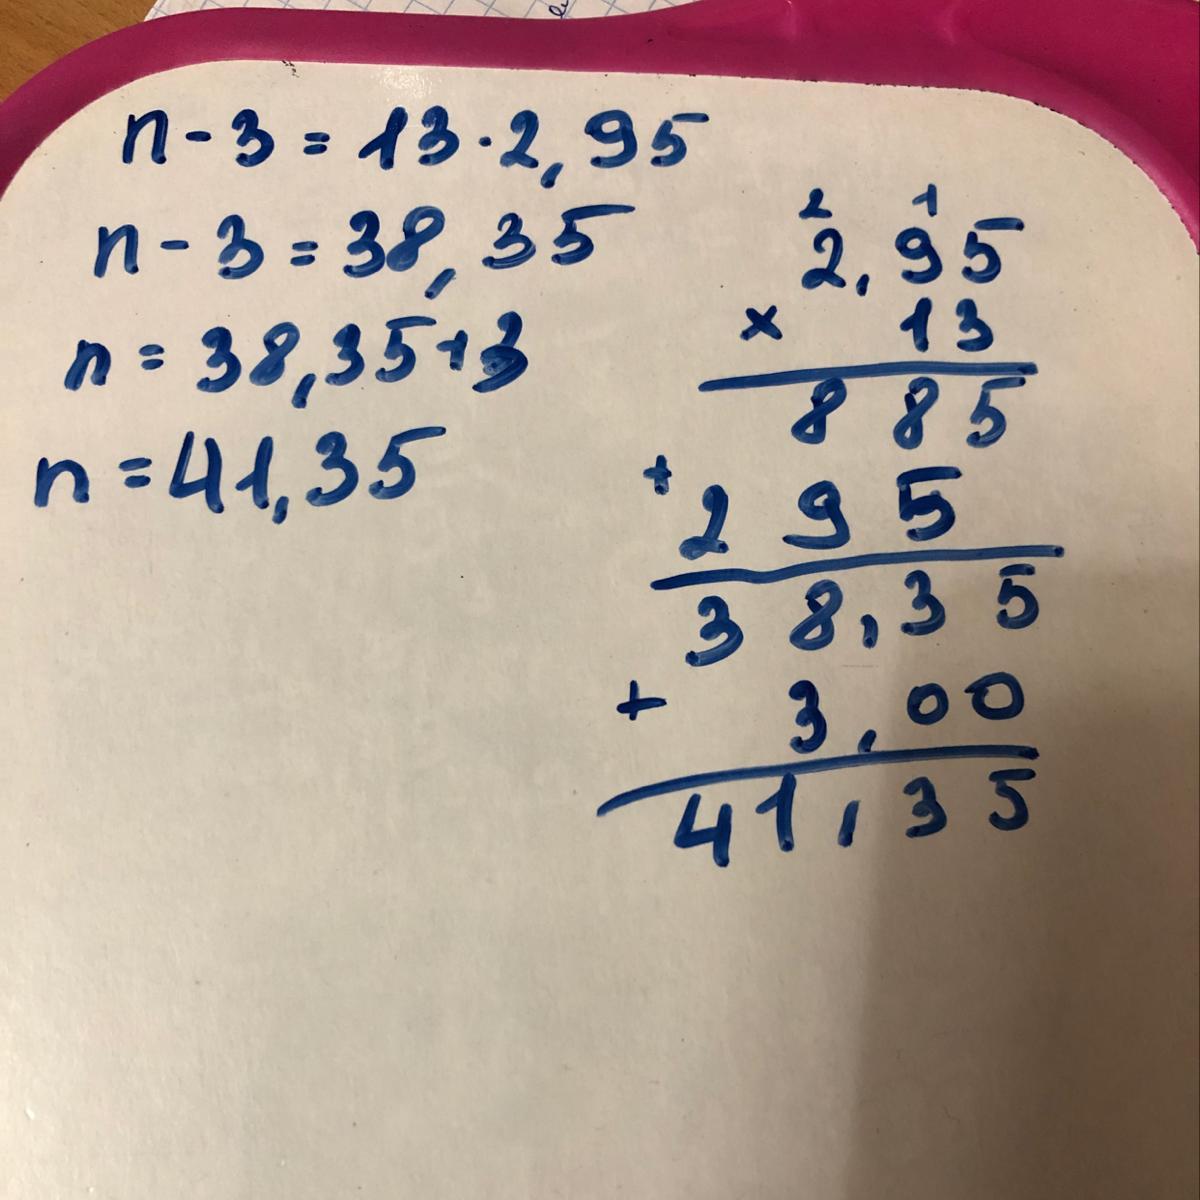 n - 3 = 13 · 2,95
n - 3 = 38,35
n = 38,35+3
n = 41,35
2 1
2,95
× 13
885
+
295
38,35
+ 3,00
41,35